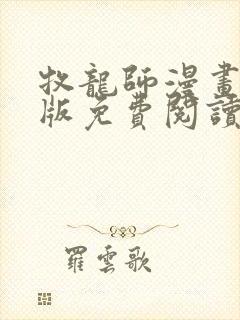 牧龍師漫畫
版免費閱讀
羅雲歌